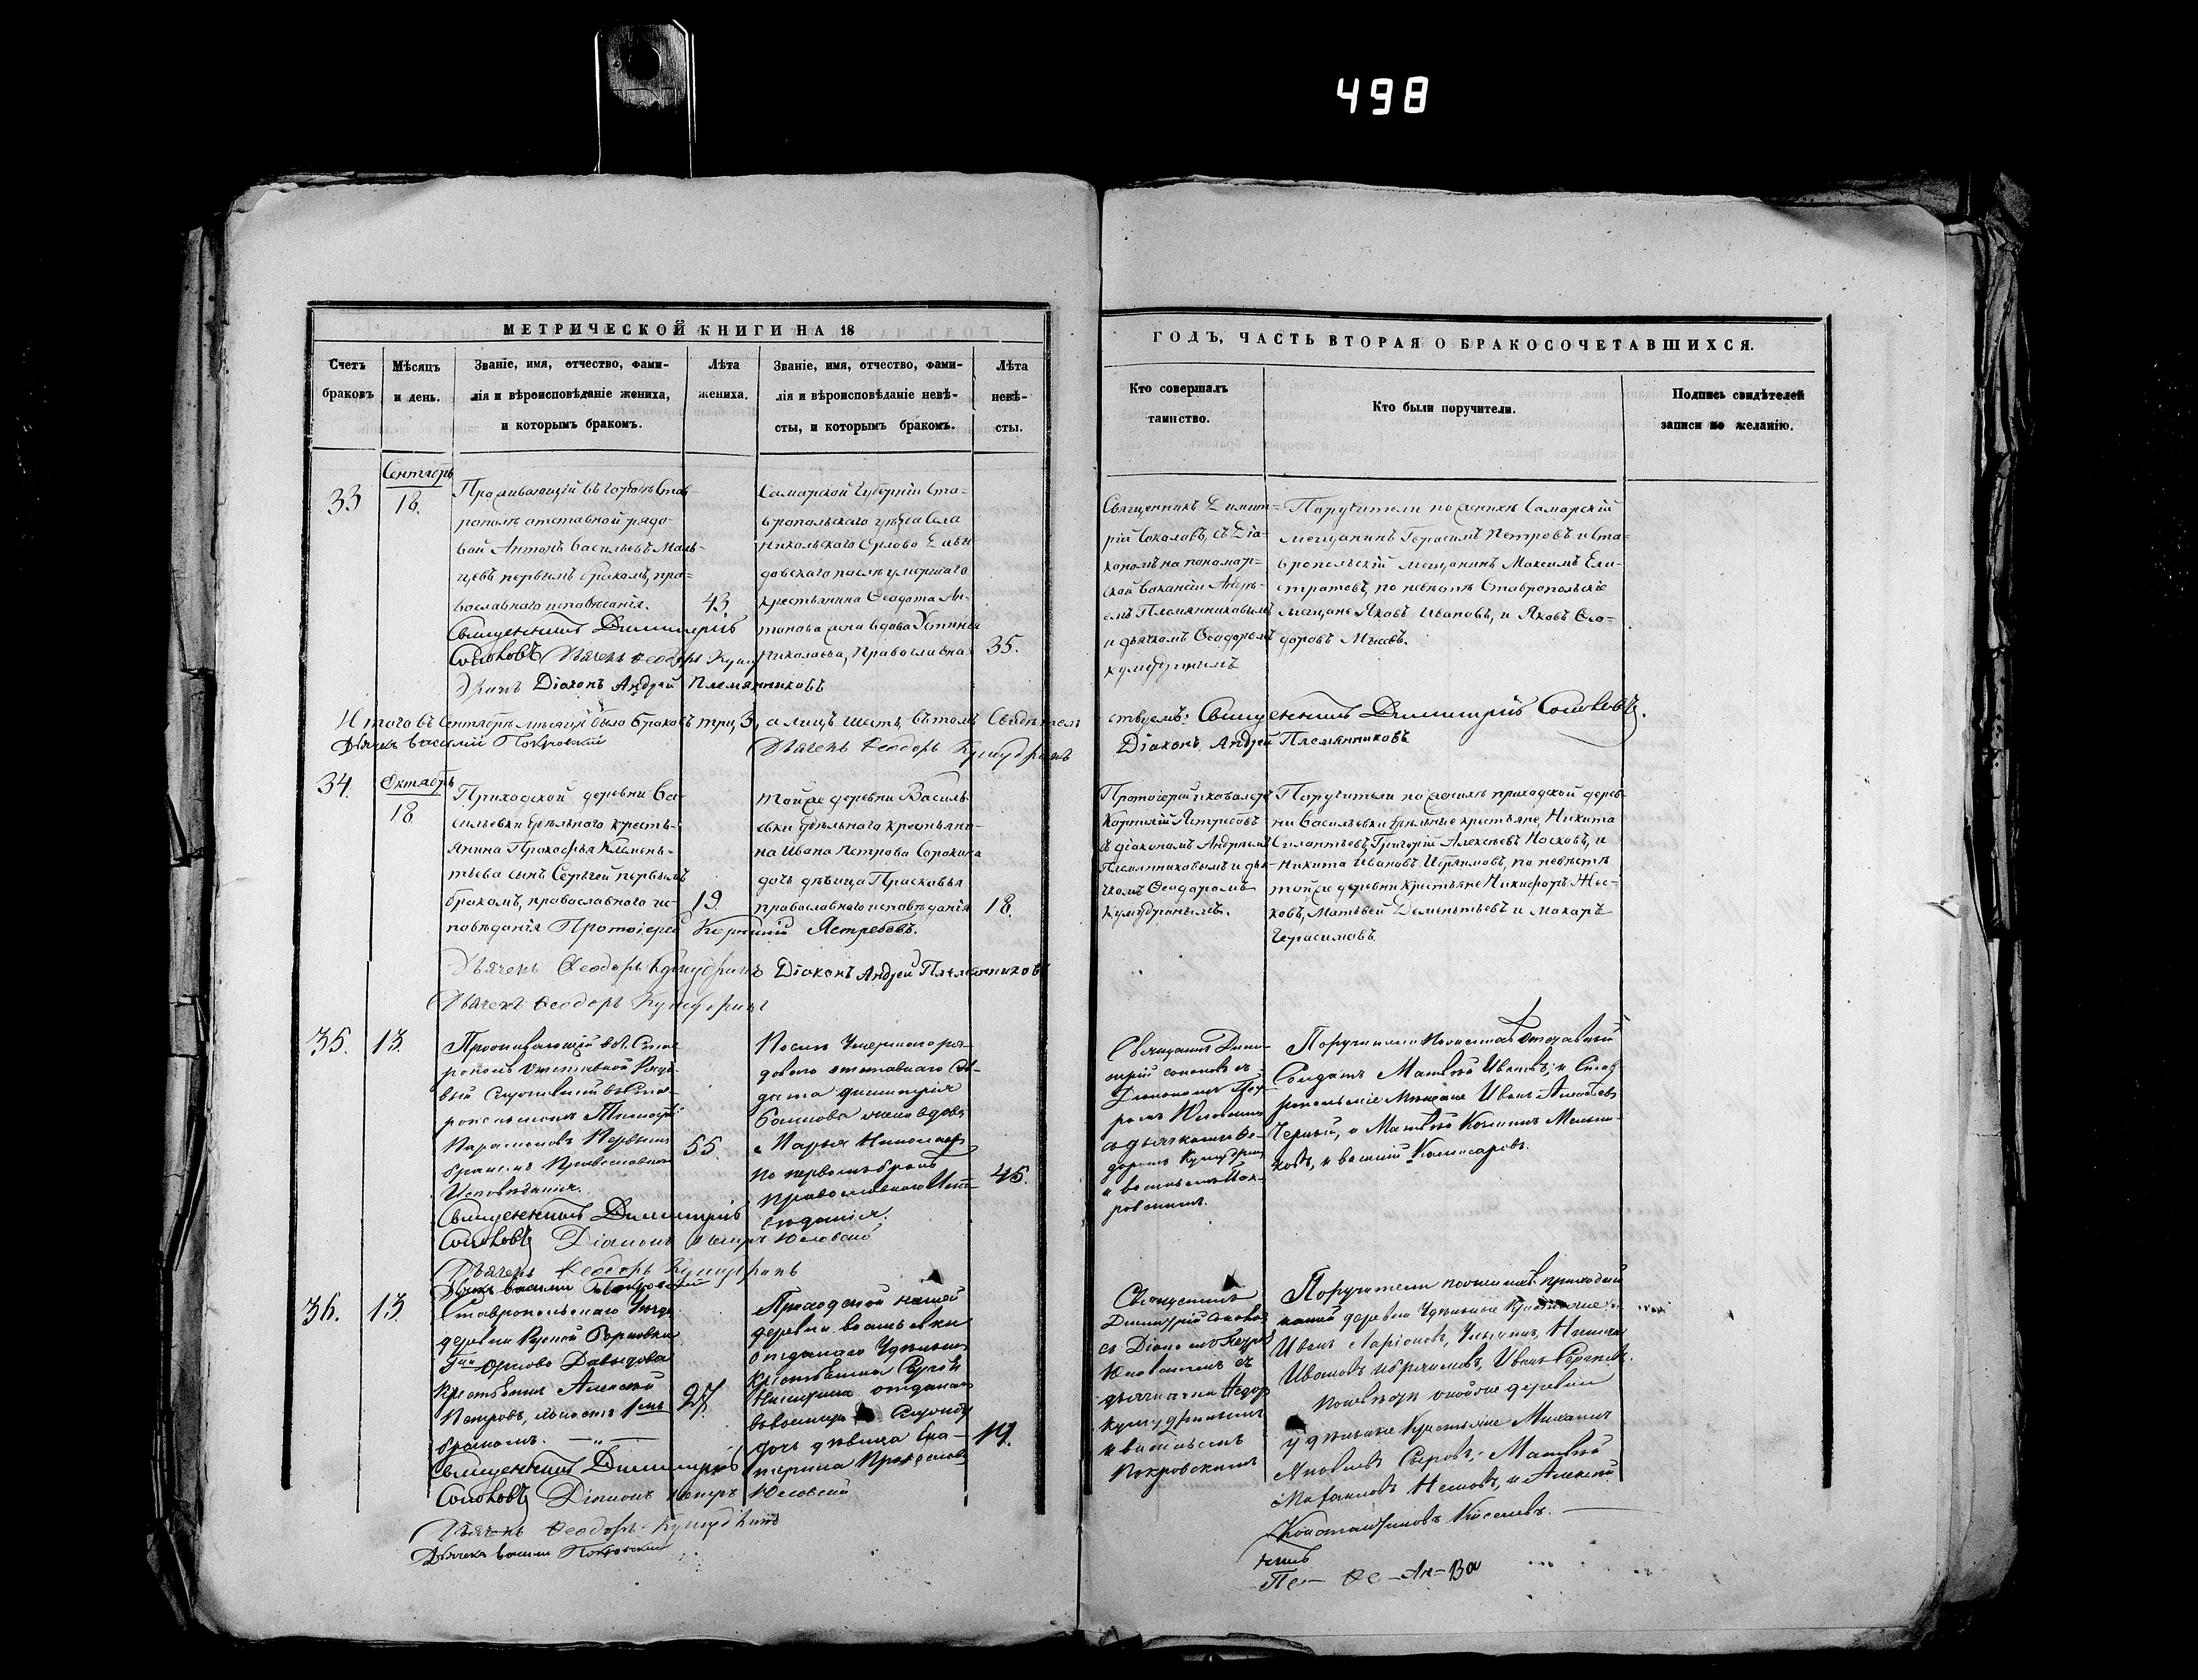 498
МЕТРИЧЕСКОЙ КНИГИ НА 18
Счетъ браковъ
Мѣсяцъ и день.
Званіе, имя, отчество, фами-
лія и вѣроисповѣданіе жениха,
и которымъ бракомъ.
Лѣта жениха.
Званіе, имя, отчество, фами-
лія и вѣроисповѣданіе невѣ-
сты, и которымъ бракомъ.
Лѣта
невѣ-
сты.
ГОДЪ, ЧАСТЬ ВТОРАЯ О БРАКОСОЧЕТАВШИХСЯ.
Кто совершалъ
таинство.
Кто были поручители.
Подпись свидѣтелей
записи по желанію.
33
Сентябрь
18.
Проживающій въ городѣ Став
рополѣ отставной рядо-
вой Антонъ Васильевъ Маль-
цевъ первымъ бракомъ, пра-
вославнаго исповѣданія.
43.
Священникъ Димитрій
Соколовъ Дьячекъ Ѳеодоръ
Діаконъ Андрей Племянниковъ
Самарской Губерніи Ста-
вропольскаго уѣзда села
Никольскаго Орлово Давы-
довскаго послѣ умершаго
крестьянина Ѳеодота Ан-
тонова жена вдова Устинья
Николаева, Православна
35.
Священникъ Димит-
рій Соколовъ, съ Діа-
кономъ на пономар-
ской вакансіи Андре-
емъ Племянниковымъ
и дьячкомъ Ѳеодоромъ
Кумудринымъ
Поручители по женихѣ Самарскій
мещанинъ Герасимъ Петровъ и Ста-
вропольскій мещанинъ Максимъ Ели-
стратовъ, по невѣстѣ Ставропольскіе
мещане Яковъ Ивановъ, и Яковъ Ѳео-
доровъ
Итого въ Сентябрѣ мѣсяцѣ было браковъ три, 3, а лицъ шесть, въ томъ Свидѣтель
ствуемъ: Священникъ Димитрій Соколовъ.
Дьячекъ Василій Покровскій
Дьячекъ Ѳеодоръ Кумудринъ
Діаконъ Андрей Племянниковъ
34.
Октябрь
18
Приходской деревни Ва-
сильевки удѣльнаго кресть-
янина Прокофья Клемень-
тьева сынъ Сергѣй первымъ
бракомъ, православнаго ис-
повѣданія
19.
Протоіерей Корнилій Ястребовъ.
Дьячекъ Ѳеодоръ Кумудринъ Діаконъ Андрей Племянниковъ
Дьячекъ Ѳеодоръ Кумудринъ
тойже деревни Василь-
евки удѣльнаго крестьяни-
на Ивана Петрова Сорокина
дочь дѣвица Прасковья
православнаго исповѣданія
18.
Протоіерей и кавалеръ
Корнилій Ястребовъ
съ діакономъ Андреемъ
Племянниковымъ и дья-
чкомъ Ѳеодоромъ
Кумудринымъ.
Поручители по женихѣ приходской дерев-
ни Васильевки удѣльные крестьяне, Никита
Силантьевъ, Григорій Алексѣевъ Носковъ, и
Никита Ивановъ по невѣстѣ
тойже деревни крестьяне Никифоръ
Матвей Дементьевъ и Макаръ
Герасимовъ
35.
13.
Проживающій въ г. Став
рополѣ отставной Рядо-
вой
Парамоновъ Первымъ
бракомъ Православнаго
Исповѣданія.
55.
Священникъ Димитрій
Соколовъ Діаконъ Петръ Юловскій
Дьячекъ Ѳеодоръ Кумудринъ
Дьячекъ Василій Покровскій
Послѣ Умершаго ря-
доваго отставнаго Сол-
дата Димитрія
жена вдова
Марья
по первомъ бракѣ
православнаго Испо-
вѣданія.
45.
Священникъ Дими-
трій Соколовъ съ
Діакономъ Пет-
ромъ
и дьячками Ѳе-
доромъ Кумудринъ
и Васильемъ Пок-
ровскимъ.
Поручители по женихѣ Отставной
Солдатъ Матвей Ивановъ, и Став
ропольскіе Мещане Иванъ
Черный, и Матвей
и Василій Комисаровъ.
36.
13.
Ставропольскаго Уѣзда
деревни Русской Борковки
Орлово Давыдова
Крестьянинъ Алексѣй
Петровъ, 1мъ
бракомъ.
27.
Священникъ Димитрій
Соколовъ Діаконъ Петръ Юловскій
Дьячекъ Ѳеодоръ Кумудринъ
Дьячекъ Василій Покровскій
Приходской нашей
деревни Васильевки
Удѣльнаго
Крестьянина
дочь дѣвица
19.
Священникъ
Димитрій Соколовъ
съ Діакономъ Петромъ
съ
дьячками Ѳедор
Кумудринымъ
и Васильемъ
Покровскимъ
Поручители по женихѣ приходской
нашей деревни Удѣльные Крестьяне
Иванъ Ларіоновъ, Никита
Ивановъ Иванъ Сергѣевъ.
По невѣстѣ деревни
удѣльные Крестьяне Михаилъ
Яковлевъ Матвей
и Алексей
Константиновъ Киселевъ.
Пе- Ѳе- Ан- Ва